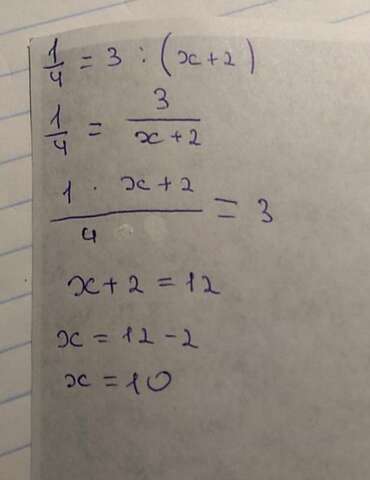 1/4 = 3 : (x+2)
1/4 = 3/x+2
1 · x+2/4 = 3
x+2 = 12
x = 12-2
x = 10